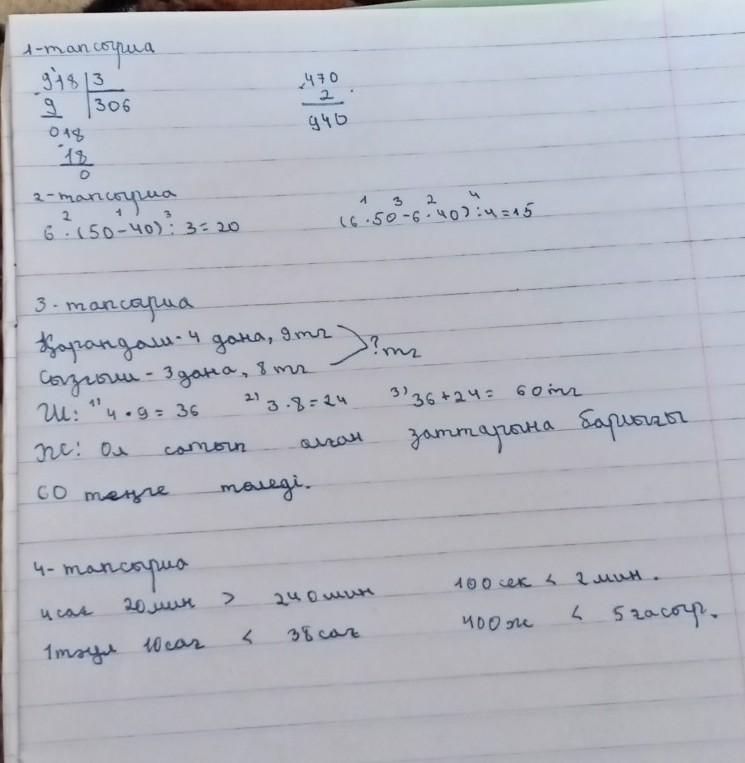 1-тапсырма
918 | 3      470
9 | 306      2
018      940
18
0
2-тапсырма
6 · (50-40) : 3 = 20      (6 · 50 - 6 · 40) : 4 = 15
3-тапсырма
Қарандаш - 4 дана, 9 тг
? тг
Сызғыш - 3 дана, 8 тг
Ш: 1) 4 · 9 = 36   2) 3 · 8 = 24   3) 36 + 24 = 60 тг
Ж: Ол сатып алған заттарына барлығы
60 теңге төледі.
4-тапсырма
4 сағ 20 мин > 240 мин      100 сек < 2 мин.
1 тәул 10 сағ < 38 сағ      400 ж < 5 ғасыр.